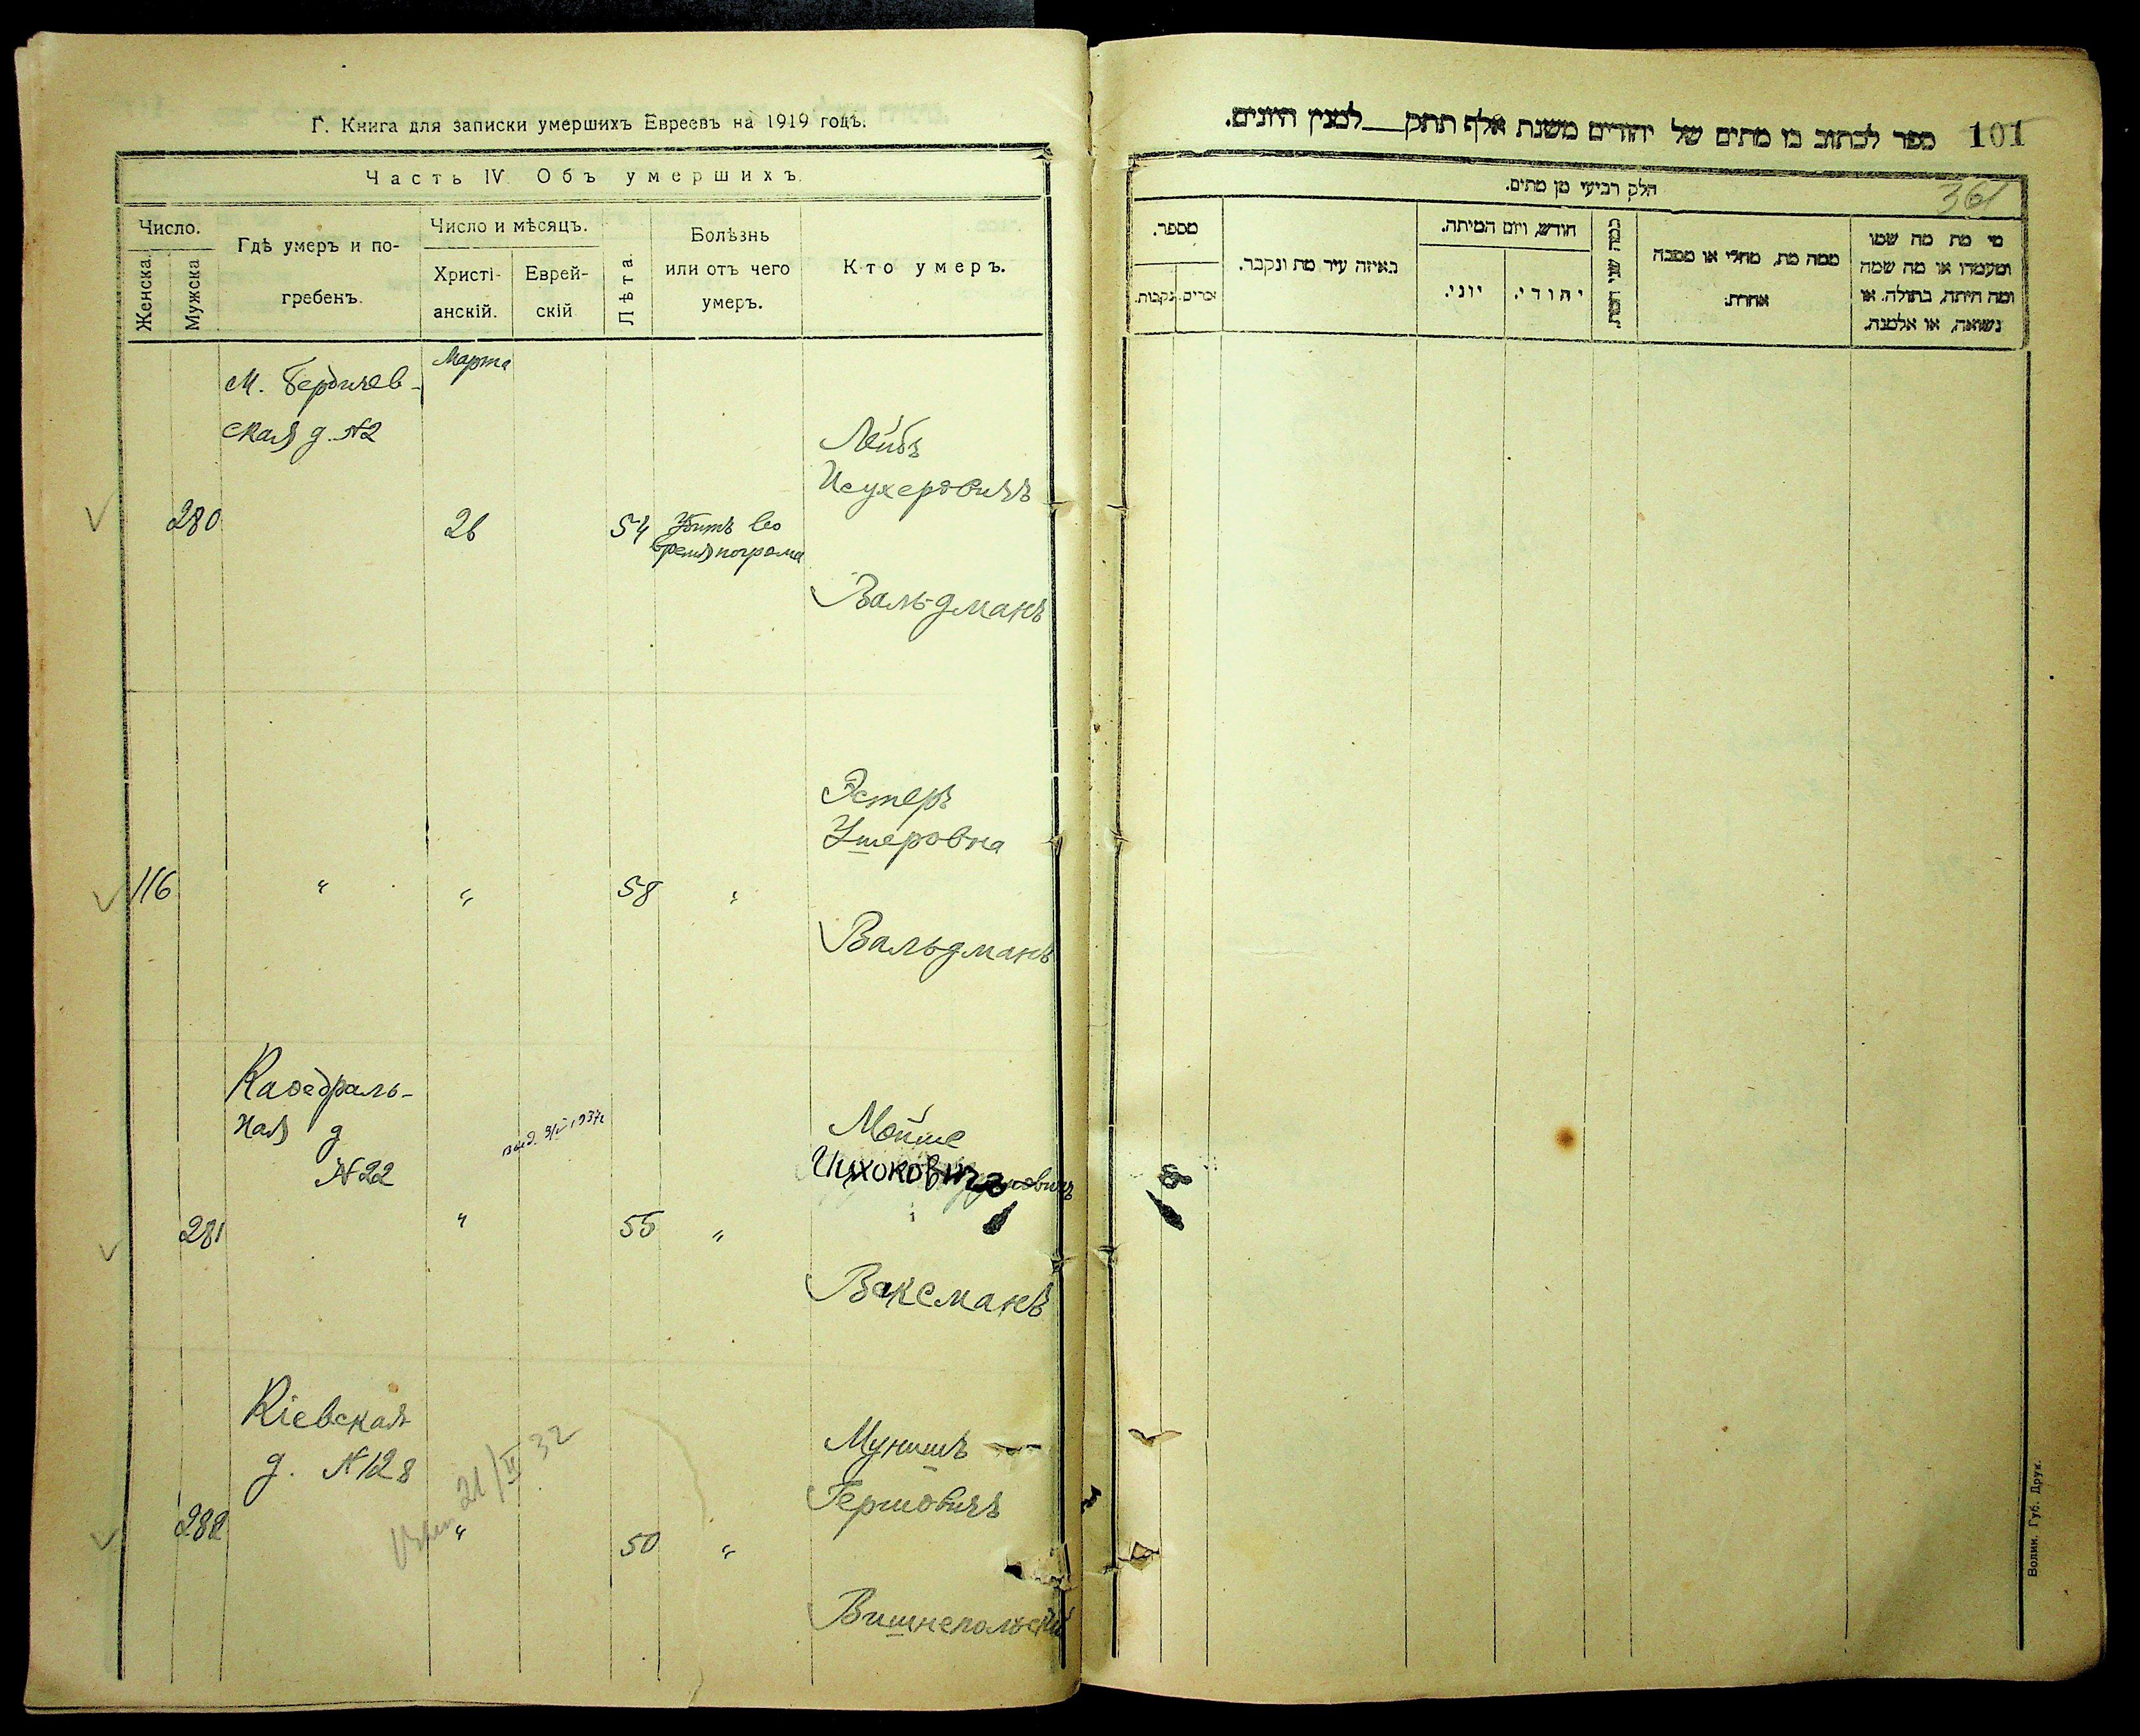 Г. Книга для записки умершихъ Евреевъ на 1919 годъ.
Часть IV Объ умершихъ.
Число.
Женска
Мужска
Гдѣ умеръ и по-
гребенъ.
Число и мѣсяцъ.
Христі-
анскій.
Еврей-
скій
Лѣта
Болѣзнь
или отъ чего
умеръ.
Кто умеръ.
Марта
М. Бердичев-
ская д. N2
Лейбъ
Исухеровичъ
280
26
54
Убитъ во
время погрома
Вальдманъ
Эстеръ
Ушеровна
116
"
"
58
"
Вальдманъ
Каѳедраль-
ная д
N22
Мойше
Ицхоковичъ
281
"
55
"
Ваксманъ
Кіевская
д. N128
21/II 32
Мунишъ
Гершовичъ
282
"
50
"
Вишнепольскій
101
ספר לכתוב בו מתים של יהודים משנת אלף תתק___למנין היונים.
361
חלק רביעי מן מתים.
מספר.
זכרים.
נקבות.
באיזה עיר מת ונקבר.
חודש, ויום המיתה.
יוני.
יהודי.
כמה שני המת.
ממה מת, מחלי או מסבה
אחרת.
מי מת מה שמו
ומעמדו או מה שמה
ומה היתה, בתולה. או
נשואה, או אלמנה.
Волин. Губ. Друк.